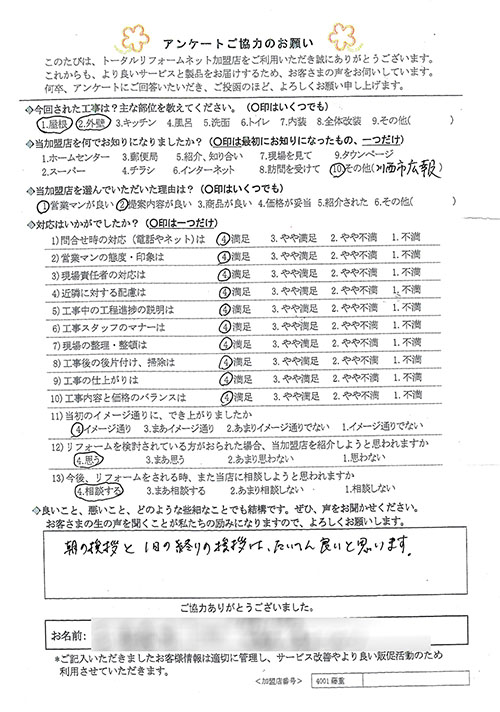 アンケートご協力のお願い
このたびは、トータルリフォームネット加盟店をご利用いただき誠にありがとうございます。
これからも、より良いサービスと製品をお届けするため、お客さまの声をお伺いしています。
何卒、アンケートにご回答いただき、ご投函のほど、よろしくお願い申し上げます。
◇今回された工事は？主な部位を教えてください。（○印はいくつでも）
1.屋根 2.外壁 3.キッチン 4.風呂 5.洗面 6.トイレ 7.内装 8.全体改装 9.その他( )
◇当加盟店を何でお知りになりましたか？（○印は最初にお知りになったもの、一つだけ）
1.ホームセンター 3.郵便局 5.紹介、知り合い 7.現場を見て 9.タウンページ
2.スーパー 4.チラシ 6.インターネット 8.訪問を受けて 10その他(川西市広報)
◇当加盟店を選んでいただいた理由は？（○印はいくつでも）
1営業マンが良い 2提案内容が良い 3.商品が良い 4.価格が妥当 5.紹介された 6.その他( )
◇対応はいかがでしたか？（○印は一つだけ）
1)問合せ時の対応（電話やネット）は 4満足 3.やや満足 2.やや不満 1.不満
2)営業マンの態度・印象は 4満足 3.やや満足 2.やや不満 1.不満
3)現場責任者の対応は 4満足 3.やや満足 2.やや不満 1.不満
4)近隣に対する配慮は 4満足 3.やや満足 2.やや不満 1.不満
5)工事中の工程進捗の説明は 4満足 3.やや満足 2.やや不満 1.不満
6)工事スタッフのマナーは 4満足 3.やや満足 2.やや不満 1.不満
7)現場の整理・整頓は 4満足 3.やや満足 2.やや不満 1.不満
8)工事後の後片付け、掃除は 4満足 3.やや満足 2.やや不満 1.不満
9)工事の仕上がりは 4満足 3.やや満足 2.やや不満 1.不満
10)工事内容と価格のバランスは 4満足 3.やや満足 2.やや不満 1.不満
11)当初のイメージ通りに、でき上がりましたか
4イメージ通り 3.まあイメージ通り 2.あまりイメージ通りでない 1.イメージ通りでない
12)リフォームを検討されている方がおられた場合、当加盟店を紹介しようと思われますか
4.思う 3.まあ思う 2.あまり思わない 1.思わない
13)今後、リフォームをされる時、また当店に相談しようと思われますか
4.相談する 3.まあ相談する 2.あまり相談しない 1.相談しない
◇良いこと、悪いこと、どのような些細なことでも結構です。ぜひ、声をお聞かせください。
お客さまの生の声を聞くことが私たちの励みになりますので、よろしくお願いします。
朝の挨拶と1日の終りの挨拶は、たいへん良いと思います。
ご協力ありがとうございました。
お名前:
*ご記入いただきましたお客様情報は適切に管理し、サービス改善やより良い販促活動のため
利用させていただきます。
<加盟店番号> 4001 藤重